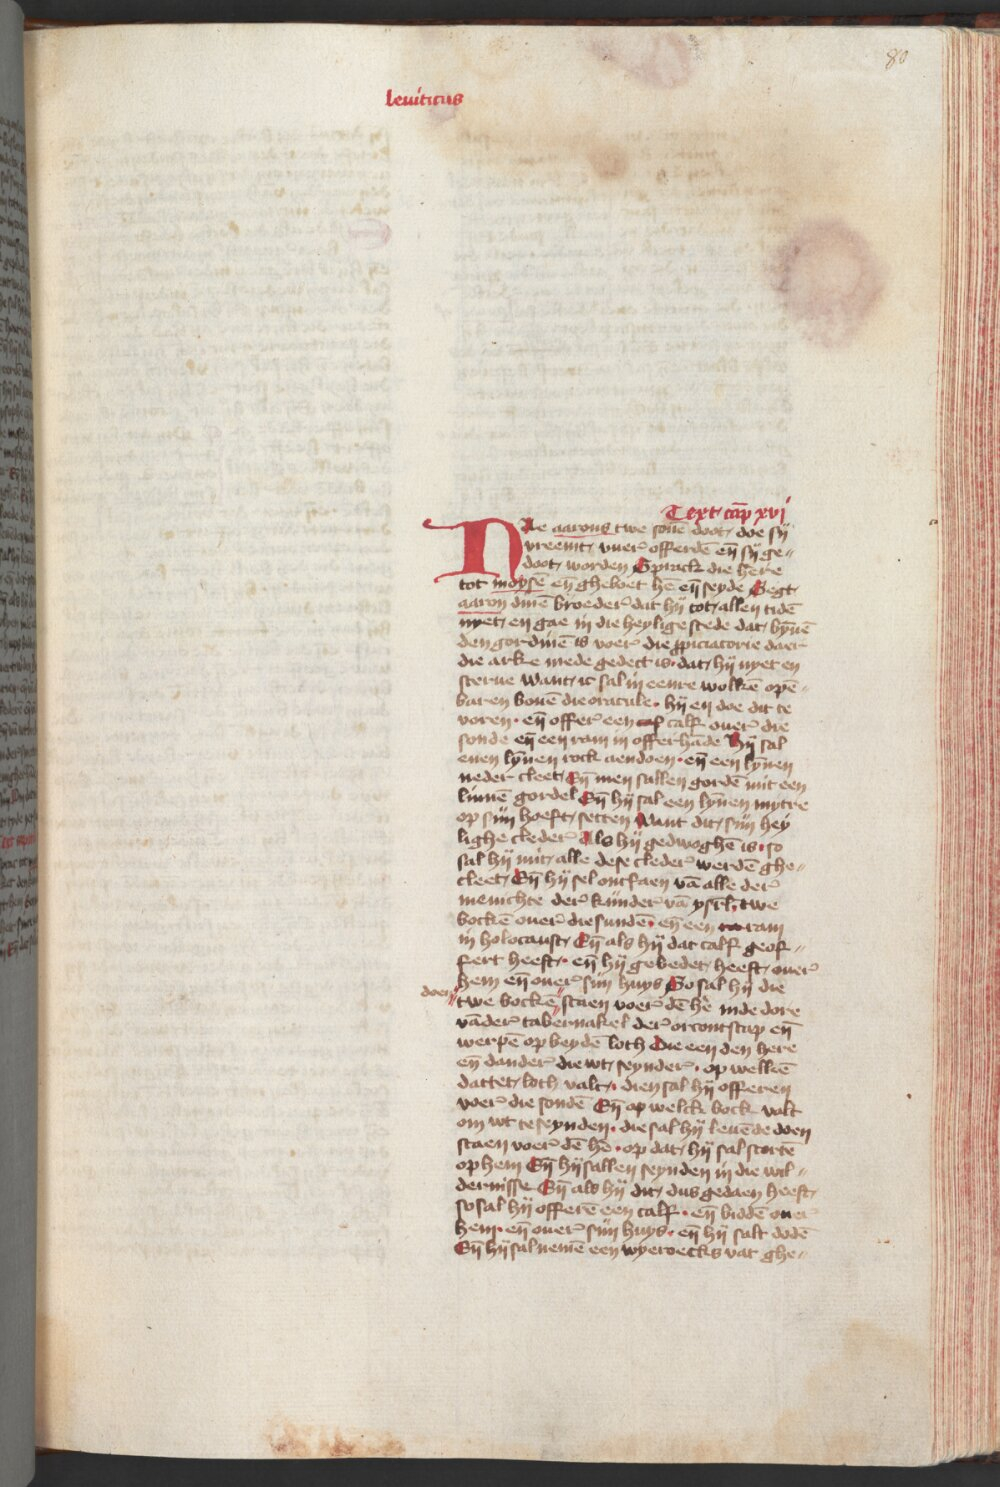 80
leuiticus
Text cap̄ xvi
Nae aarons twe sone doot doe sij
vreemt vuer offerdē en̄ sij ge-
doot worden Sprack die here
tot moysē en̄ gheboet hē en̄ seyde Segt
aaron dinē broeder dat hij tot allen tidē
nyet en gae in die heylige stede dat bȳnē
den gordinē is voer die ꝓpiciatorie daer
die arke mede gedect is· dat hij nyet en
sterue Want ic sal in eenre wolkē opē-
baren bouē die oracule· hij en doe dit te
voren· en̄ offer een calf ouer die
sonde en̄ een ram in offerhāde Hij sal
enen lȳnen rock aendoen· en̄ een lȳnen
neder cleet En̄ men sallen gordē mit een
linnē gordel En̄ hij sal een lȳnen mytre
op sijn hoeft setten Want dit sijn hey
lighe cleder Als hij gedwoghē is· so
sal hij mit alle dese cleder werdē ghe-
cleet En̄ hij sel ontfaen vā alle der
menichte der kinder vā ysrl̄· twe
bockē ouer die sundē· en̄ een ram
in holocaust En̄ als hij dat calf geof-
fert heeft· en̄ hij gebedet heeft ouer
hem en̄ ouer sijn huys So sal hij die
doen
twe bockē staen voer dē hē inde dore
vāder tabernakel der orcontscap en̄
werpē op beydē loth Die een den here
en̄ dander die wt seynder· op welkē
dattet loth valt· dien sal hij offeren
voer die sondē En̄ op welck bock valt
om wt te seynden· die sal hij leuēde doen
staen voer dē hē· op dat hij sal stortē
op hem En̄ hij sallen seynden in die wil-
dernisse En̄ als hij dit dus gedaen heeft
so sal hij offerē een calf· en̄ biddē ouer
hem· en̄ ouer sijn huys· en̄ hij salt dodē
En̄ hij sal nemē een wyeroecks vat ghe-